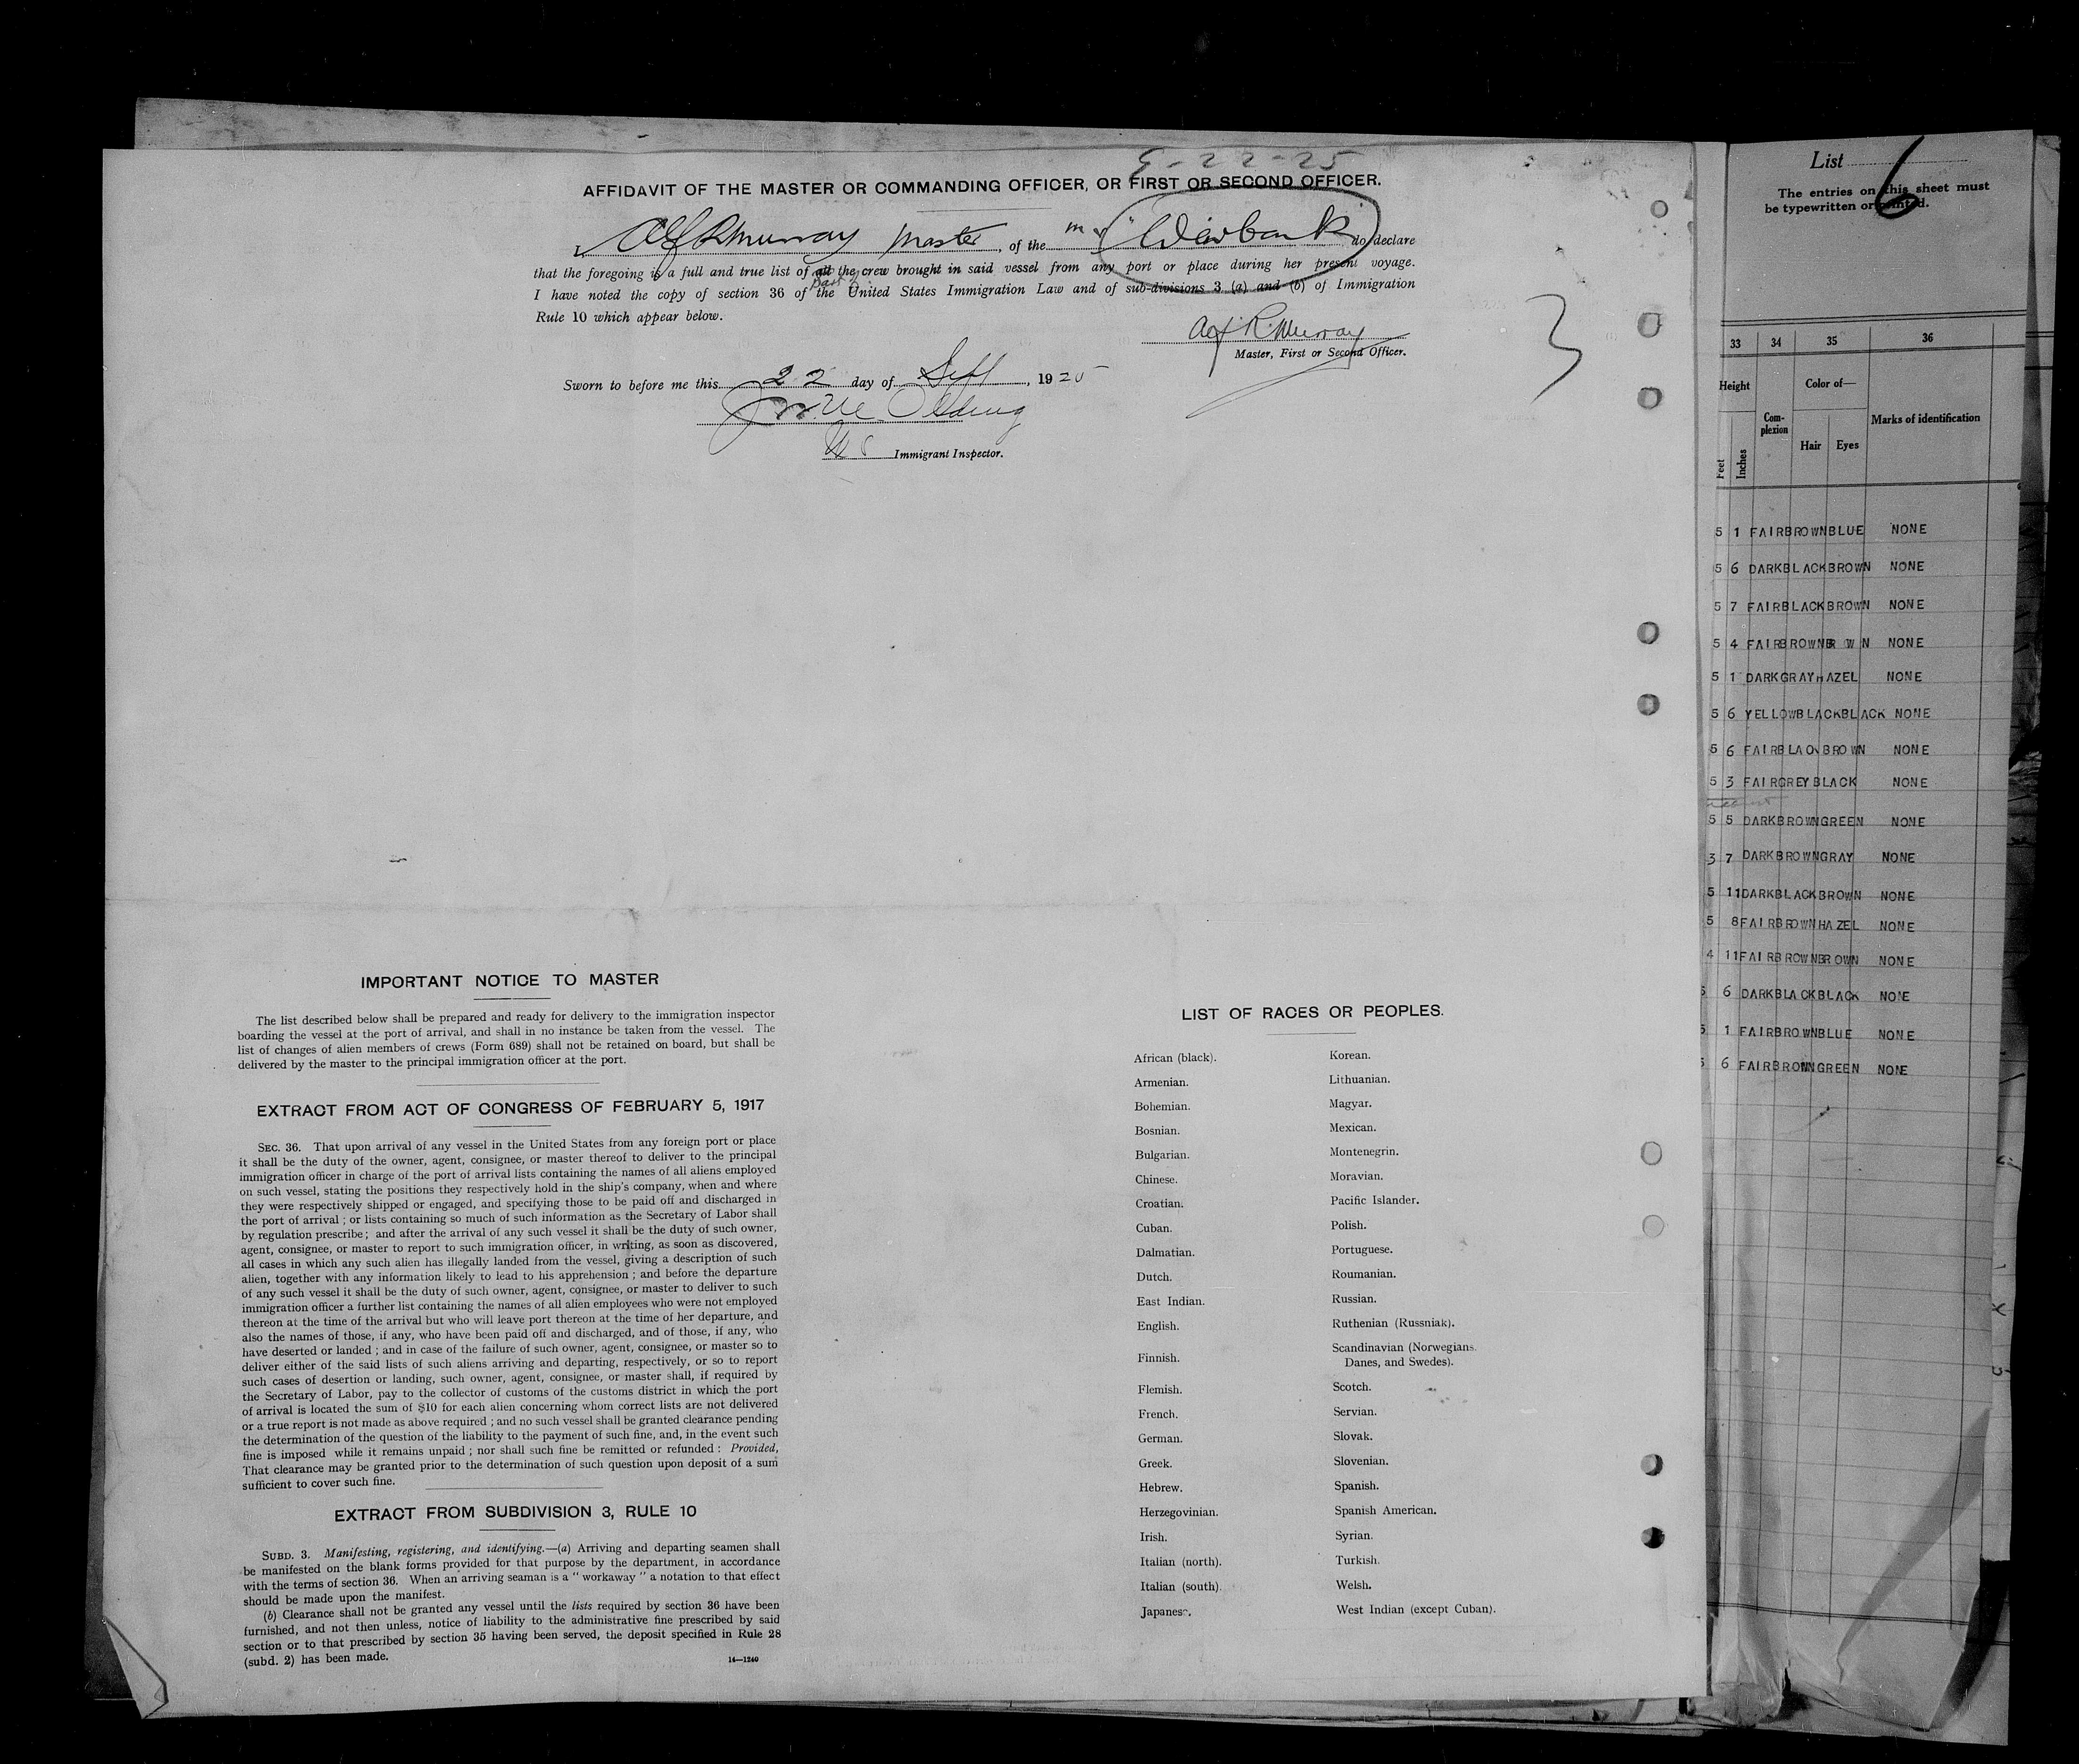 9-22-25
AFFIDAVIT OF THE MASTER OR COMMANDING OFFICER, OR FIRST OR SECOND OFFICER.
Alf R Murray Master, of the "Weirbank" do declare
that the foregoing is a full and true list of all the crew brought in said vessel from any port or place during her present voyage.
part of
I have noted the copy of section 36 of the United States Immigration Law and of sub-divisions 3 (a) and (b) of Immigration
Rule 10 which appear below.
Alf. R. Murray
Master, First or Second Officer.
3
Sworn to before me this 22 day of Sept, 1925
US Immigrant Inspector.
IMPORTANT NOTICE TO MASTER
The list described below shall be prepared and ready for delivery to the immigration inspector
boarding the vessel at the port of arrival, and shall in no instance be taken from the vessel. The
list of changes of alien members of crews (Form 689) shall not be retained on board, but shall be
delivered by the master to the principal immigration officer at the port.
EXTRACT FROM ACT OF CONGRESS OF FEBRUARY 5, 1917
SEC. 36. That upon arrival of any vessel in the United States from any foreign port or place
it shall be the duty of the owner, agent, consignee, or master thereof to deliver to the principal
immigration officer in charge of the port of arrival lists containing the names of all aliens employed
on such vessel, stating the positions they respectively hold in the ship's company, when and where
they were respectively shipped or engaged, and specifying those to be paid off and discharged in
the port of arrival; or lists containing so much of such information as the Secretary of Labor shall
by regulation prescribe; and after the arrival of any such vessel it shall be the duty of such owner,
agent, consignee, or master to report to such immigration officer, in writing, as soon as discovered,
all cases in which any such alien has illegally landed from the vessel, giving a description of such
alien, together with any information likely to lead to his apprehension; and before the departure
of any such vessel it shall be the duty of such owner, agent, consignee, or master to deliver to such
immigration officer a further list containing the names of all alien employees who were not employed
thereon at the time of the arrival but who will leave port thereon at the time of her departure, and
also the names of those, if any, who have been paid off and discharged, and of those, if any, who
have deserted or landed; and in case of the failure of such owner, agent, consignee, or master so to
deliver either of the said lists of such aliens arriving and departing, respectively, or so to report
such cases of desertion or landing, such owner, agent, consignee, or master shall, if required by
the Secretary of Labor, pay to the collector of customs of the customs district in which the port
of arrival is located the sum of $10 for each alien concerning whom correct lists are not delivered
or a true report is not made as above required; and no such vessel shall be granted clearance pending
the determination of the question of the liability to the payment of such fine, and, in the event such
fine is imposed while it remains unpaid; nor shall such fine be remitted or refunded: Provided,
That clearance may be granted prior to the determination of such question upon deposit of a sum
sufficient to cover such fine.
EXTRACT FROM SUBDIVISION 3, RULE 10
SUBD. 3. Manifesting, registering, and identifying.—(a) Arriving and departing seamen shall
be manifested on the blank forms provided for that purpose by the department, in accordance
with the terms of section 36. When an arriving seaman is a "workaway" a notation to that effect
should be made upon the manifest.
(b) Clearance shall not be granted any vessel until the lists required by section 36 have been
furnished, and not then unless, notice of liability to the administrative fine prescribed by said
section or to that prescribed by section 35 having been served, the deposit specified in Rule 28
(subd. 2) has been made.
14—1240
LIST OF RACES OR PEOPLES.
African (black). Korean.
Armenian. Lithuanian.
Bohemian. Magyar.
Bosnian. Mexican.
Bulgarian. Montenegrin.
Chinese. Moravian.
Croatian. Pacific Islander.
Cuban. Polish.
Dalmatian. Portuguese.
Dutch. Roumanian.
East Indian. Russian.
English. Ruthenian (Russniak).
Finnish. Scandinavian (Norwegians,
Danes, and Swedes).
Flemish. Scotch.
French. Servian.
German. Slovak.
Greek. Slovenian.
Hebrew. Spanish.
Herzegovinian. Spanish American.
Irish. Syrian.
Italian (north). Turkish.
Italian (south). Welsh.
Japanese. West Indian (except Cuban).
List 6
The entries on this sheet must
be typewritten or printed.
33 34 35 36
Height Complexion Color of— Marks of identification
Feet Inches Hair Eyes
5 1 FAIR BROWN BLUE NONE
5 6 DARK BLACK BROWN NONE
5 7 FAIR BLACK BROWN NONE
5 4 FAIR BROWN BR W N NONE
5 1 DARK GRAY HAZEL NONE
5 6 YELLOW BLACK BLACK NONE
5 6 FAIR BLACK BROWN NONE
5 3 FAIR GREY BLACK NONE
5 5 DARK BROWN GREEN NONE
3 7 DARK BROWN GRAY NONE
5 11 DARK BLACK BROWN NONE
5 8 FAIR BROWN HAZEL NONE
4 11 FAIR BROWN BROWN NONE
5 6 DARK BLACK BLACK NONE
5 1 FAIR BROWN BLUE NONE
5 6 FAIR BROWN GREEN NONE